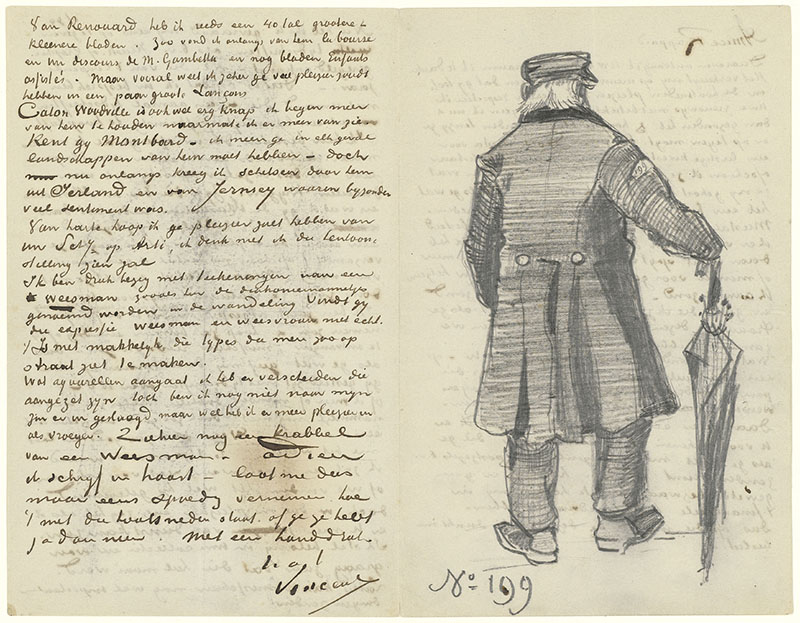 Van Renouard heb ik reeds een 40 tal grootere &
kleinere bladen. Zoo vond ik onlangs van hem la bourse
en un discours de M. Gambetta en nog bladen Enfants
assistés. Maar vooral weet ik zeker ge veel pleizier zoudt
hebben in een paar groote Lançons
Caton Woodville is ook wel erg knap ik begin meer
van hem te houden naarmate ik er meer van zie
Kent gij Montbard – ik meen ge in elk geval
landschappen van hem moet hebben – doch
nu onlangs kreeg ik schetsen door hem
uit Ierland en van Jersey waarin bijzonder
veel sentiment was.
Van harte hoop ik ge pleizier zult hebben van
uw op Arti, ik denk niet ik die tentoon-
stelling zien zal
Ik ben druk bezig met teekeningen van een
weesman zooals hier de diakoniemannetjes
genoemd worden in de wandeling Vindt gij
die expressie weesman en weesvrouw niet echt.
't Is niet makkelijk die types die men zoo op
straat ziet te maken.
Wat aquarellen aangaat ik heb er verscheiden die
aangezet zijn toch ben ik nog niet naar mijn
zin er in geslaagd maar wel heb ik er meer pleizier in
als vroeger. Ziehier nog een krabbel
van een weesman. – adieu
ik schrijf in haast – laat me dus
maar eens spoedig vernemen hoe
't met die houtsneden staat, of ge ze hebt
ja dan neen. Met een handdruk
t. à t.
Vincent
No 199